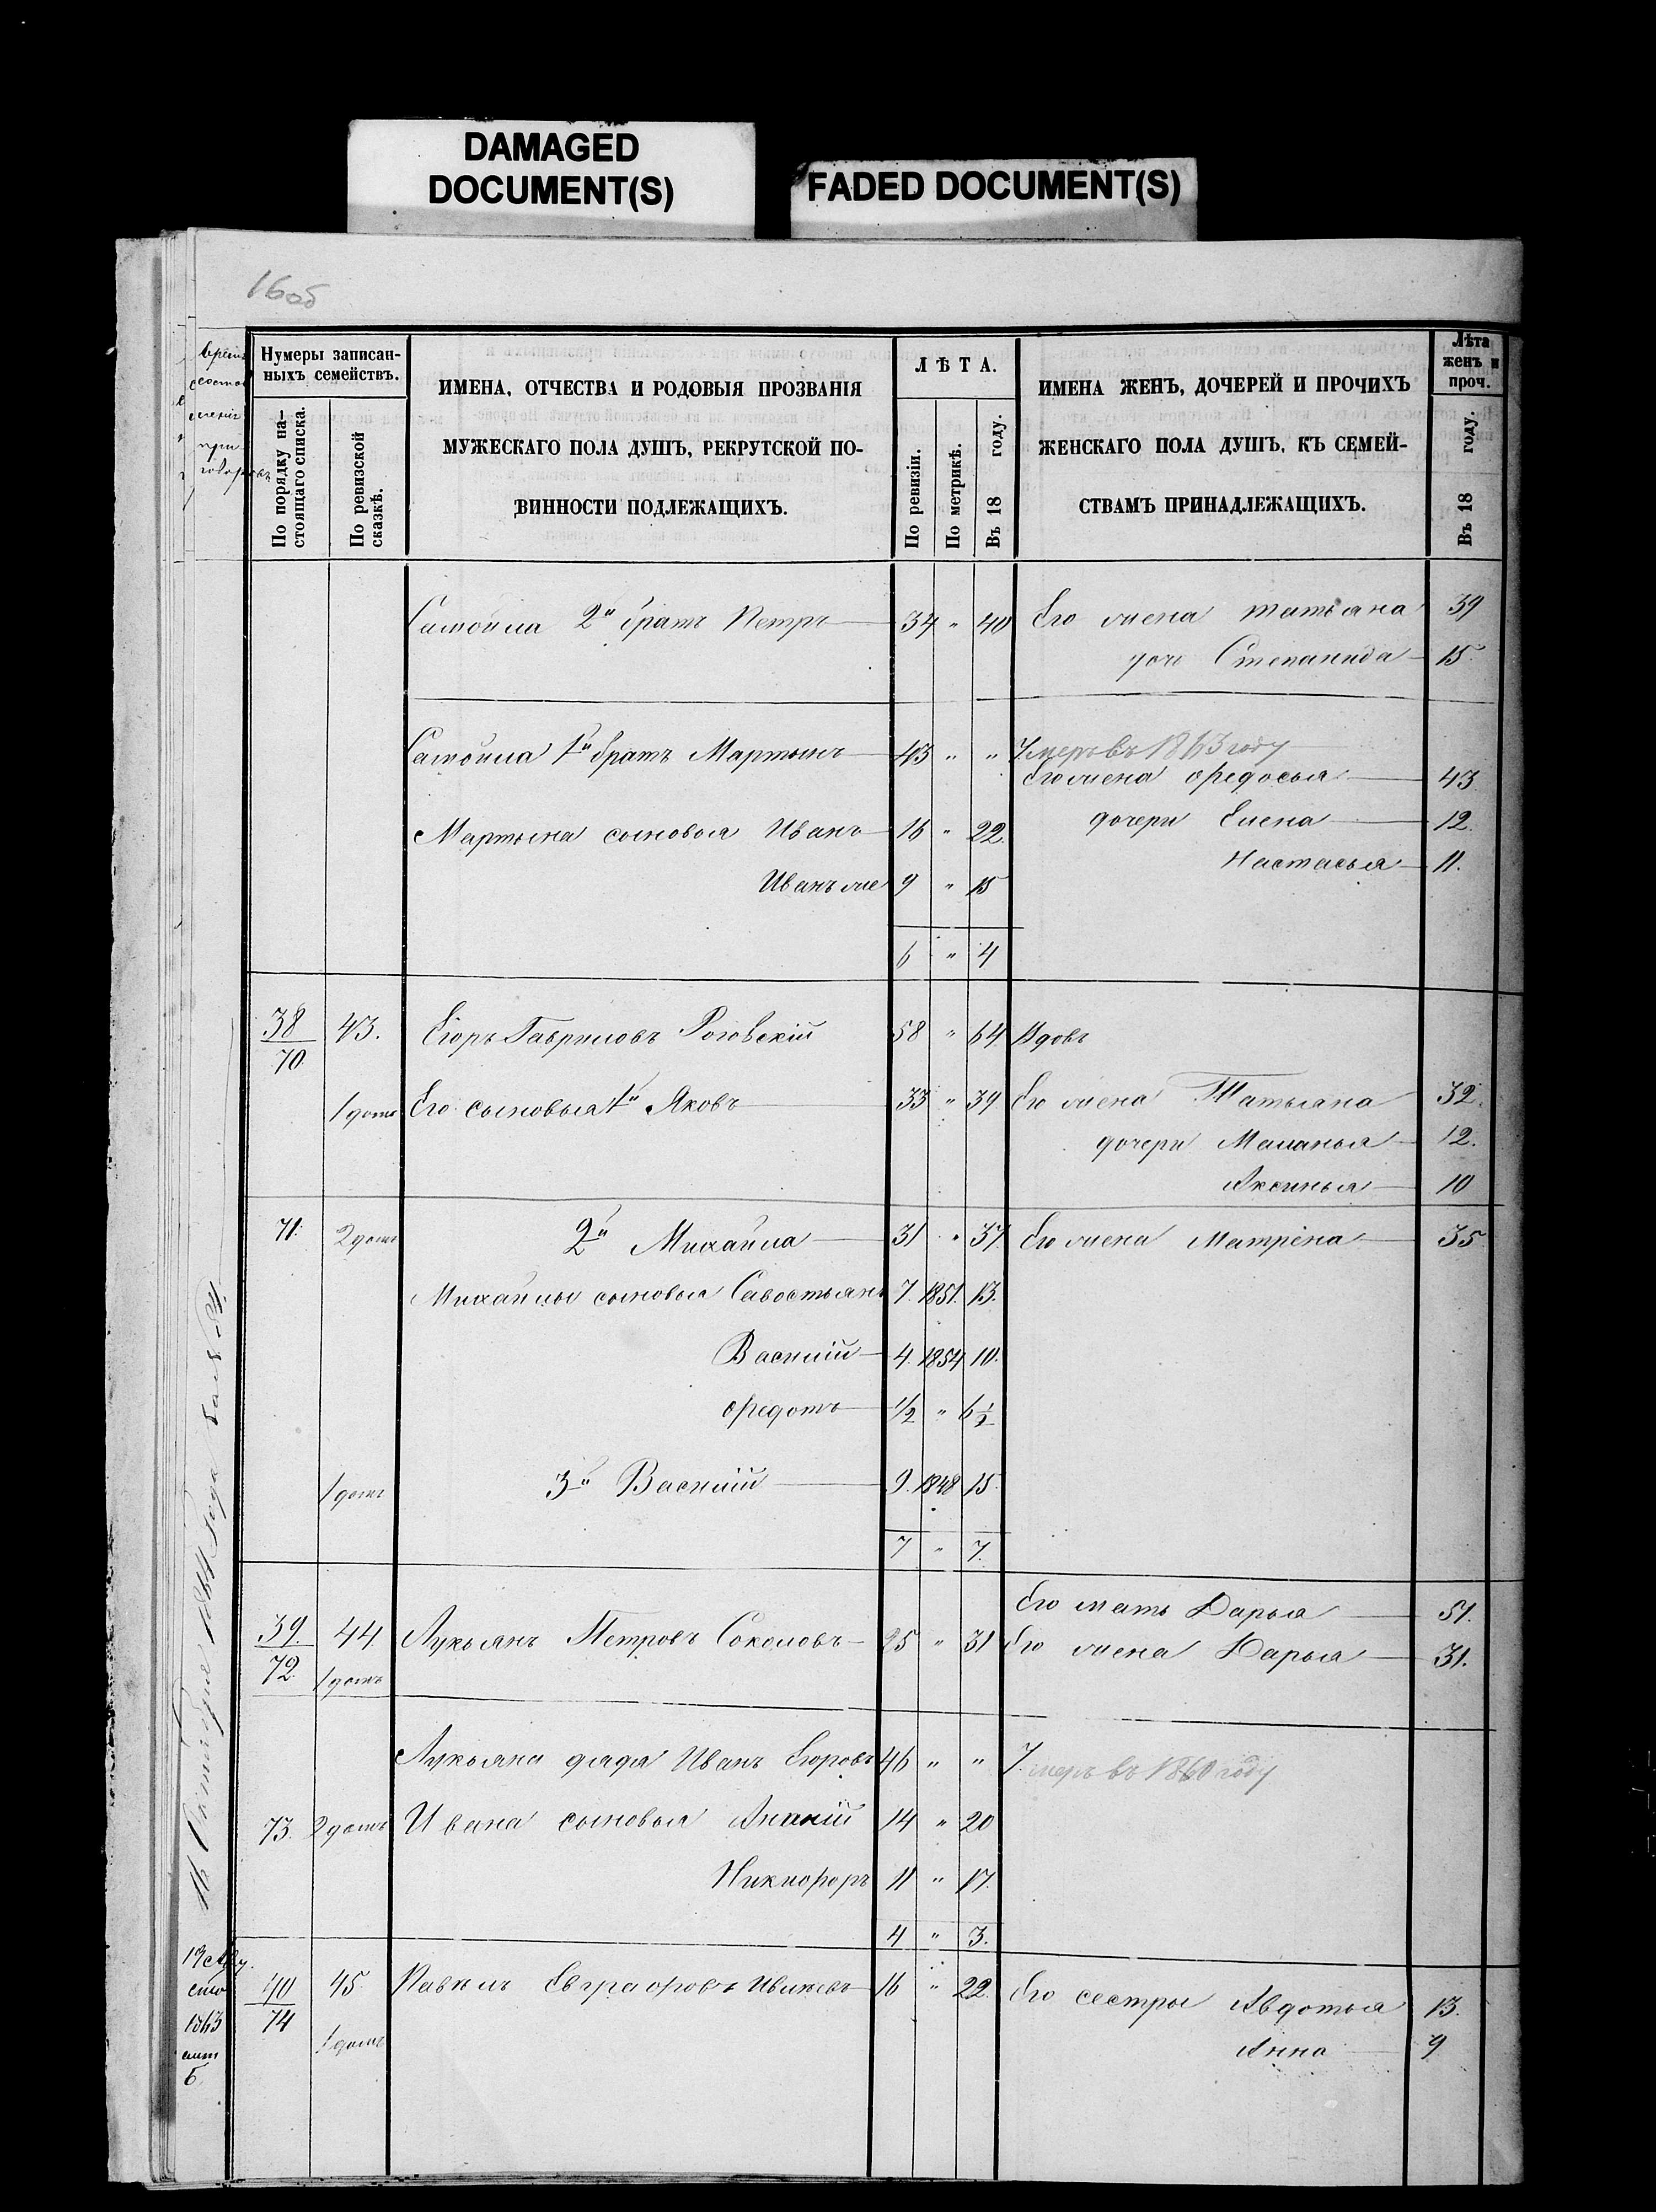 DAMAGED
DOCUMENT(S)
FADED DOCUMENT(S)
16об
Нумеры записан-
ныхъ семействъ.
По порядку на-
стоящаго списка.
По ревизской
сказкѣ.
ИМЕНА, ОТЧЕСТВА И РОДОВЫЯ ПРОЗВАНІЯ
МУЖЕСКАГО ПОЛА ДУШЪ, РЕКРУТСКОЙ ПО-
ВИННОСТИ ПОДЛЕЖАЩИХЪ.
ЛѢТА.
По ревизіи.
По метрикѣ.
Въ 18 году.
ИМЕНА ЖЕНЪ, ДОЧЕРЕЙ И ПРОЧИХЪ
ЖЕНСКАГО ПОЛА ДУШЪ, КЪ СЕМЕЙ-
СТВАМЪ ПРИНАДЛЕЖАЩИХЪ.
Лѣта
женъ и
проч.
Въ 18 году.
Самойла 2й братъ Петръ 34 " 40 Его жена татьяна 39
дочь Степанида 15.
Самойла 1й братъ Мартынъ 43 " " Умеръ въ 1863 году
Его жена Ѳедосья 43
Мартына сыновья Иванъ 16 " 22. дочери Елена 12.
Настасья 11.
Иванъ же 9 " 15
6 " 4
38/70 43. Егоръ Гавриловъ Роговскій 58 " 64. Вдовъ
1 домъ Его сыновья 1й Яковъ 33 " 39 Его жена Татьяна 32.
дочери Маланья 12.
Аксинья 10
71. 2 домъ 2й Михайла 31 " 37. Его жена Матрёна 35
Михайлы сыновья Савостьянъ 7. 1851. 13.
Василій 4. 1854 10.
Ѳедотъ 1/2 " 6 1/2
1 домъ 3й Василій 9. 1848 15.
7 " 7.
Его мать Дарья 51.
39./72. 44 Лукьянъ Петровъ Соколовъ 25 " 31 Его жена Дарья 31.
1 домъ
Лукьяна дядя Иванъ Егоровъ 46 " " Умеръ въ 1860 году
73. 2 домъ Ивана сыновья Ананій 14 " 20
Никифоръ 11 " 17.
4 " 3.
40/74 45. Павелъ Евграфовъ 16 " 22. Его сестры Авдотья 13.
1 домъ Анна 9